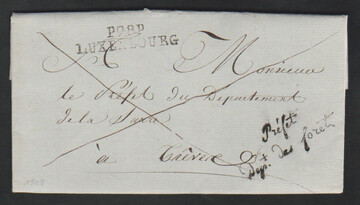 P98P
LUXEMBOURG
Monsieur
le Préfet du Departement
de la Sarre
à Trèves
Préfet
Dép. des forêts